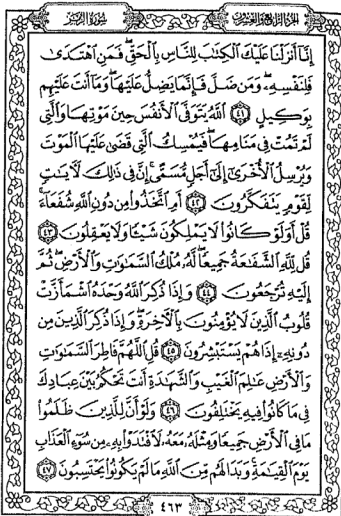 الجزء الرابع والعشرون
سورة الزمر
إِنَّا أَنزَلْنَا عَلَيْكَ الْكِتَابَ لِلنَّاسِ بِالْحَقِّ فَمَنِ اهْتَدَىٰ
فَلِنَفْسِهِ وَمَن ضَلَّ فَإِنَّمَا يَضِلُّ عَلَيْهَا وَمَا أَنتَ عَلَيْهِم
بِوَكِيلٍ ٤١ اللَّهُ يَتَوَفَّى الْأَنفُسَ حِينَ مَوْتِهَا وَالَّتِي
لَمْ تَمُتْ فِي مَنَامِهَا فَيُمْسِكُ الَّتِي قَضَىٰ عَلَيْهَا الْمَوْتَ
وَيُرْسِلُ الْأُخْرَىٰ إِلَىٰ أَجَلٍ مُّسَمًّى إِنَّ فِي ذَٰلِكَ لَآيَاتٍ
لِّقَوْمٍ يَتَفَكَّرُونَ ٤٢ أَمِ اتَّخَذُوا مِن دُونِ اللَّهِ شُفَعَاءَ
قُلْ أَوَلَوْ كَانُوا لَا يَمْلِكُونَ شَيْئًا وَلَا يَعْقِلُونَ ٤٣
قُل لِّلَّهِ الشَّفَاعَةُ جَمِيعًا لَّهُ مُلْكُ السَّمَاوَاتِ وَالْأَرْضِ ثُمَّ
إِلَيْهِ تُرْجَعُونَ ٤٤ وَإِذَا ذُكِرَ اللَّهُ وَحْدَهُ اشْمَأَزَّتْ
قُلُوبُ الَّذِينَ لَا يُؤْمِنُونَ بِالْآخِرَةِ وَإِذَا ذُكِرَ الَّذِينَ مِن
دُونِهِ إِذَا هُمْ يَسْتَبْشِرُونَ ٤٥ قُلِ اللَّهُمَّ فَاطِرَ السَّمَاوَاتِ
وَالْأَرْضِ عَالِمَ الْغَيْبِ وَالشَّهَادَةِ أَنتَ تَحْكُمُ بَيْنَ عِبَادِكَ
فِي مَا كَانُوا فِيهِ يَخْتَلِفُونَ ٤٦ وَلَوْ أَنَّ لِلَّذِينَ ظَلَمُوا
مَا فِي الْأَرْضِ جَمِيعًا وَمِثْلَهُ مَعَهُ لَافْتَدَوْا بِهِ مِن سُوءِ الْعَذَابِ
يَوْمَ الْقِيَامَةِ وَبَدَا لَهُم مِّنَ اللَّهِ مَا لَمْ يَكُونُوا يَحْتَسِبُونَ ٤٧
٤٦٣